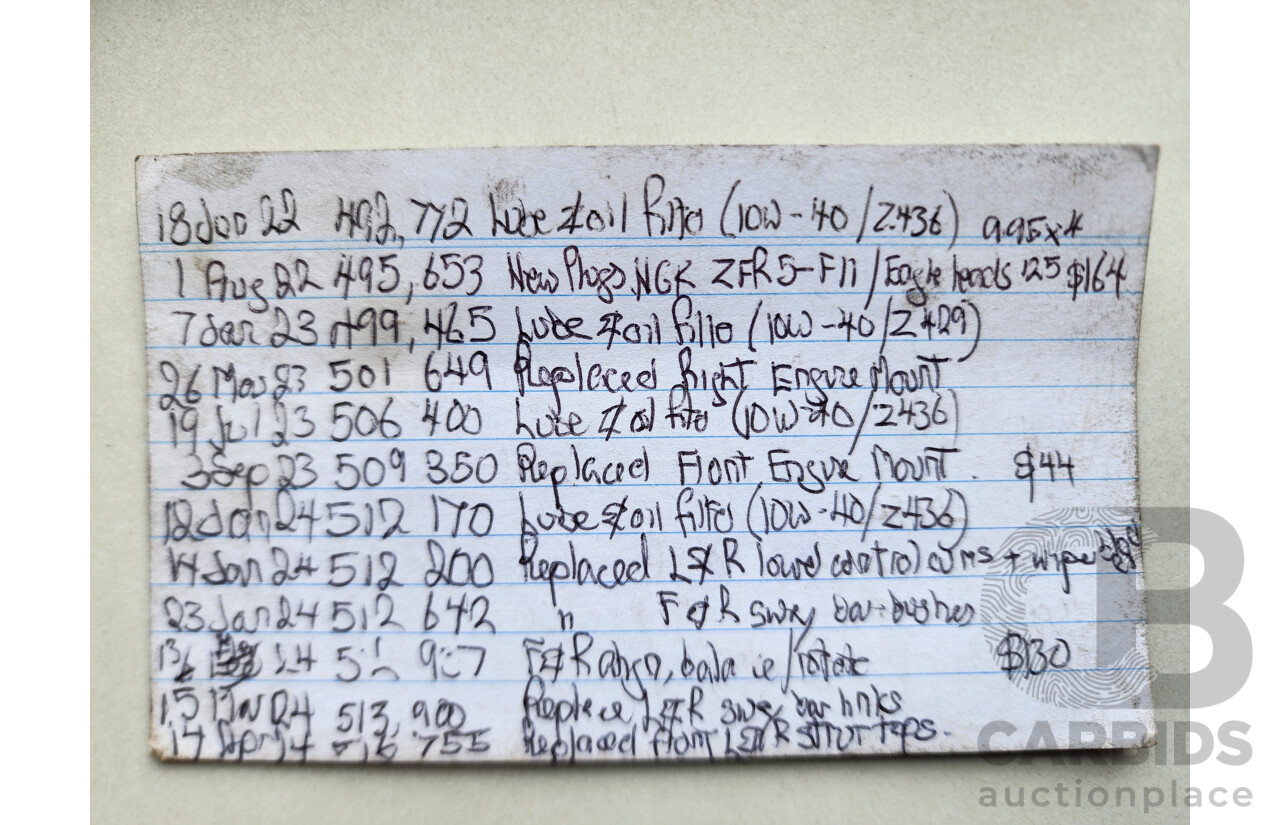 18 Jan 22 492,772 Lube & oil filter (10W-40/Z436) 9.95x4
1 Aug 22 495,653 New Plugs NGK ZFR5-F11/Eagle leads 125 $164
7 Jan 23 499,465 Lube & oil filter (10W-40/Z429)
26 Mar 23 501 649 Replaced Right Engine Mount
19 Jul 23 506 400 Lube & oil filter (10W-40/Z436)
3 Sep 23 509 350 Replaced Front Engine Mount. $44
12 Jan 24 512 170 Lube & oil filter (10W-40/Z436)
14 Jan 24 512 200 Replaced L&R lower control arms + wiper
23 Jan 24 512 642 " F&R sway bar bushes
24 F&R align, balance/rotate $130
15 Mar 24 513,900 Replace L&R sway bar links
755 Replaced front L&R strut tops.
CARBIDS
auctionplace